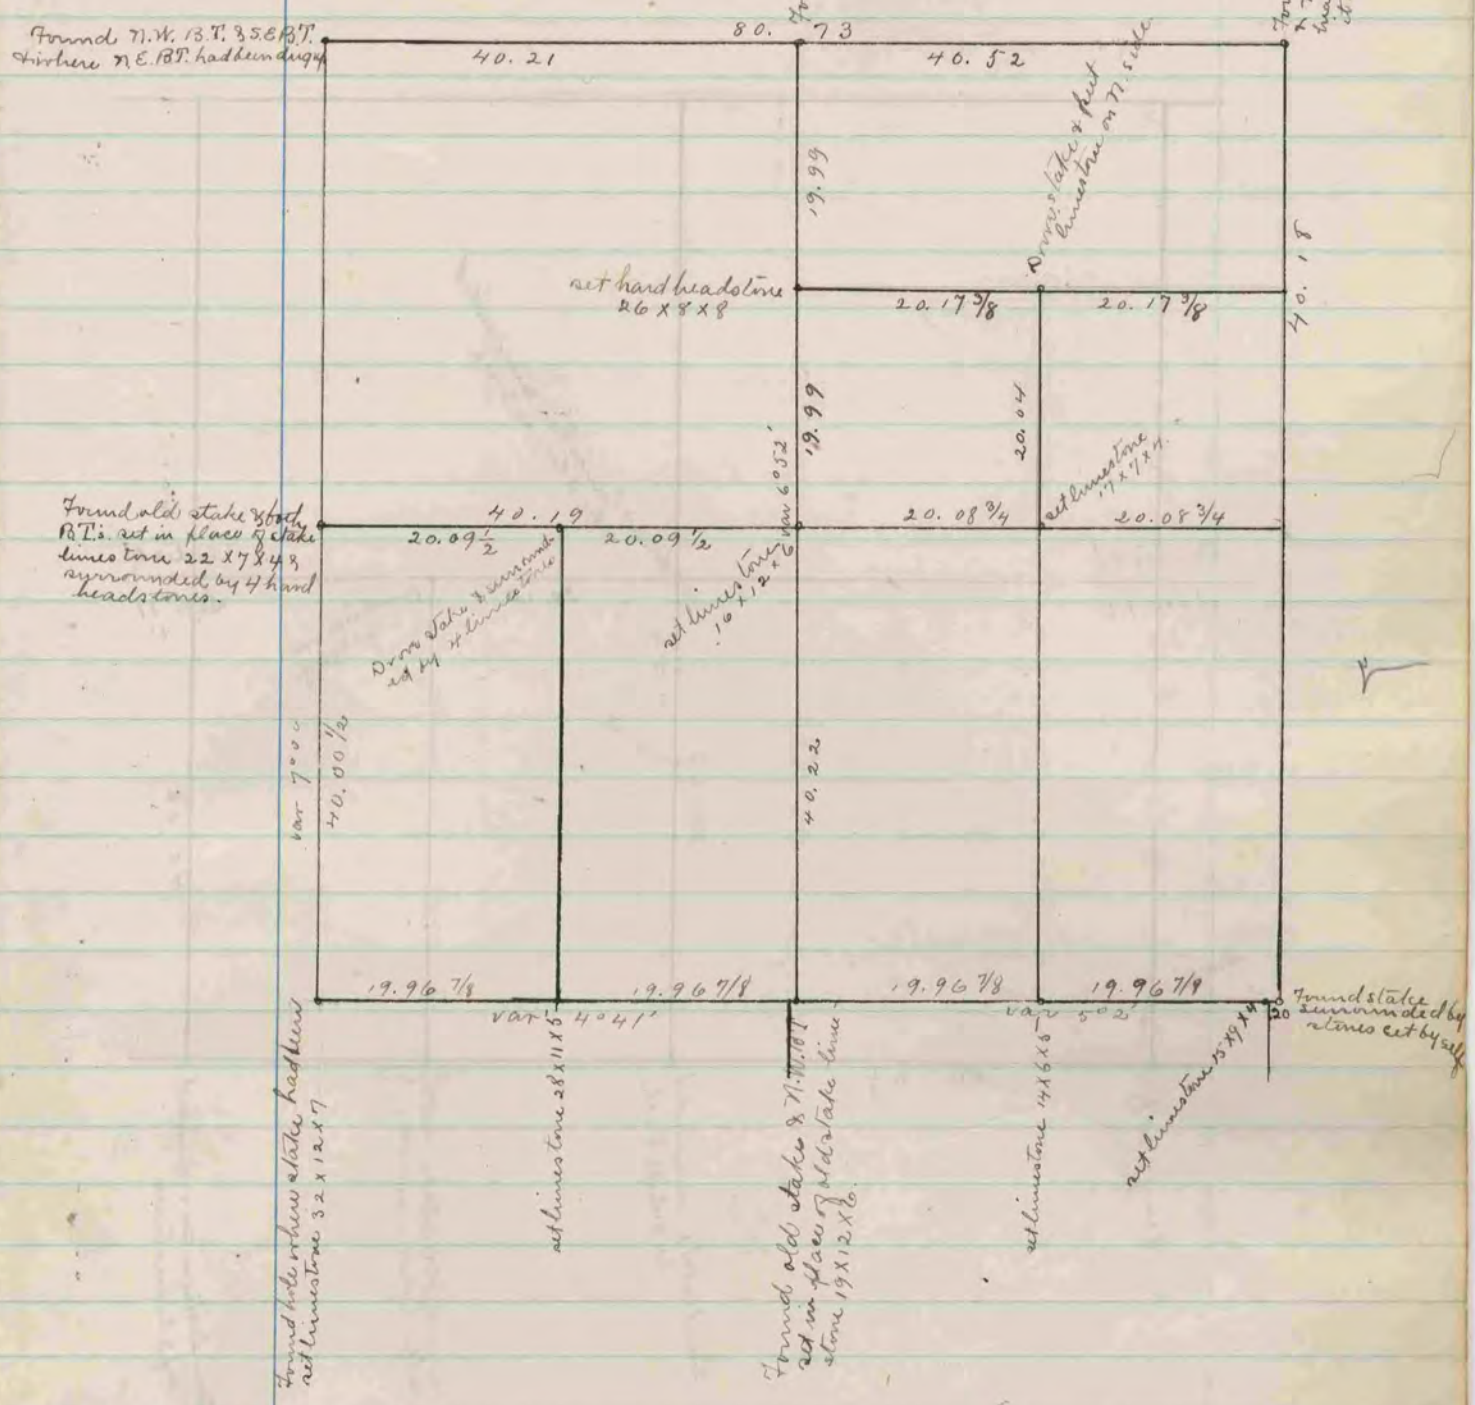 Found N.W. B.T. & S.E B.T.
& where N.E. B.T. had been dug up
80. 73
40. 21
40. 52
19.99
Drove stake & put
limestone on N. side
40. 18
set hard headstone
26 x 8 x 8
20. 17 3/8
20. 17 3/8
19.99
20.04
var 6° 52'
set limestone
17 x 7 x 4.
Found old stake & both
B.T.'s. set in place of stake
limestone 22 x 7 x 4 &
surrounded by 4 hard
headstones.
40. 19
20.09 1/2
20.09 1/2
20.08 3/4
20.08 3/4
Drove stake & surround
ed by 4 limestones
set limestone
16 x 12 x 6
var 7° 00
40.00 1/2
40.22
19.96 7/8
19.96 7/8
19.96 7/8
19.96 7/8
var 4° 41'
var 5° 2'
20
Found stake
surrounded by
stones set by self
Found hole where stake had been
set limestone 32 x 12 x 7
set limestone 28 x 11 x 5
Found old stake & N.W. B T
set in place of old stake lime
stone 19 x 12 x 6.
set limestone 14 x 6 x 5
set limestone 15 x 9 x 4